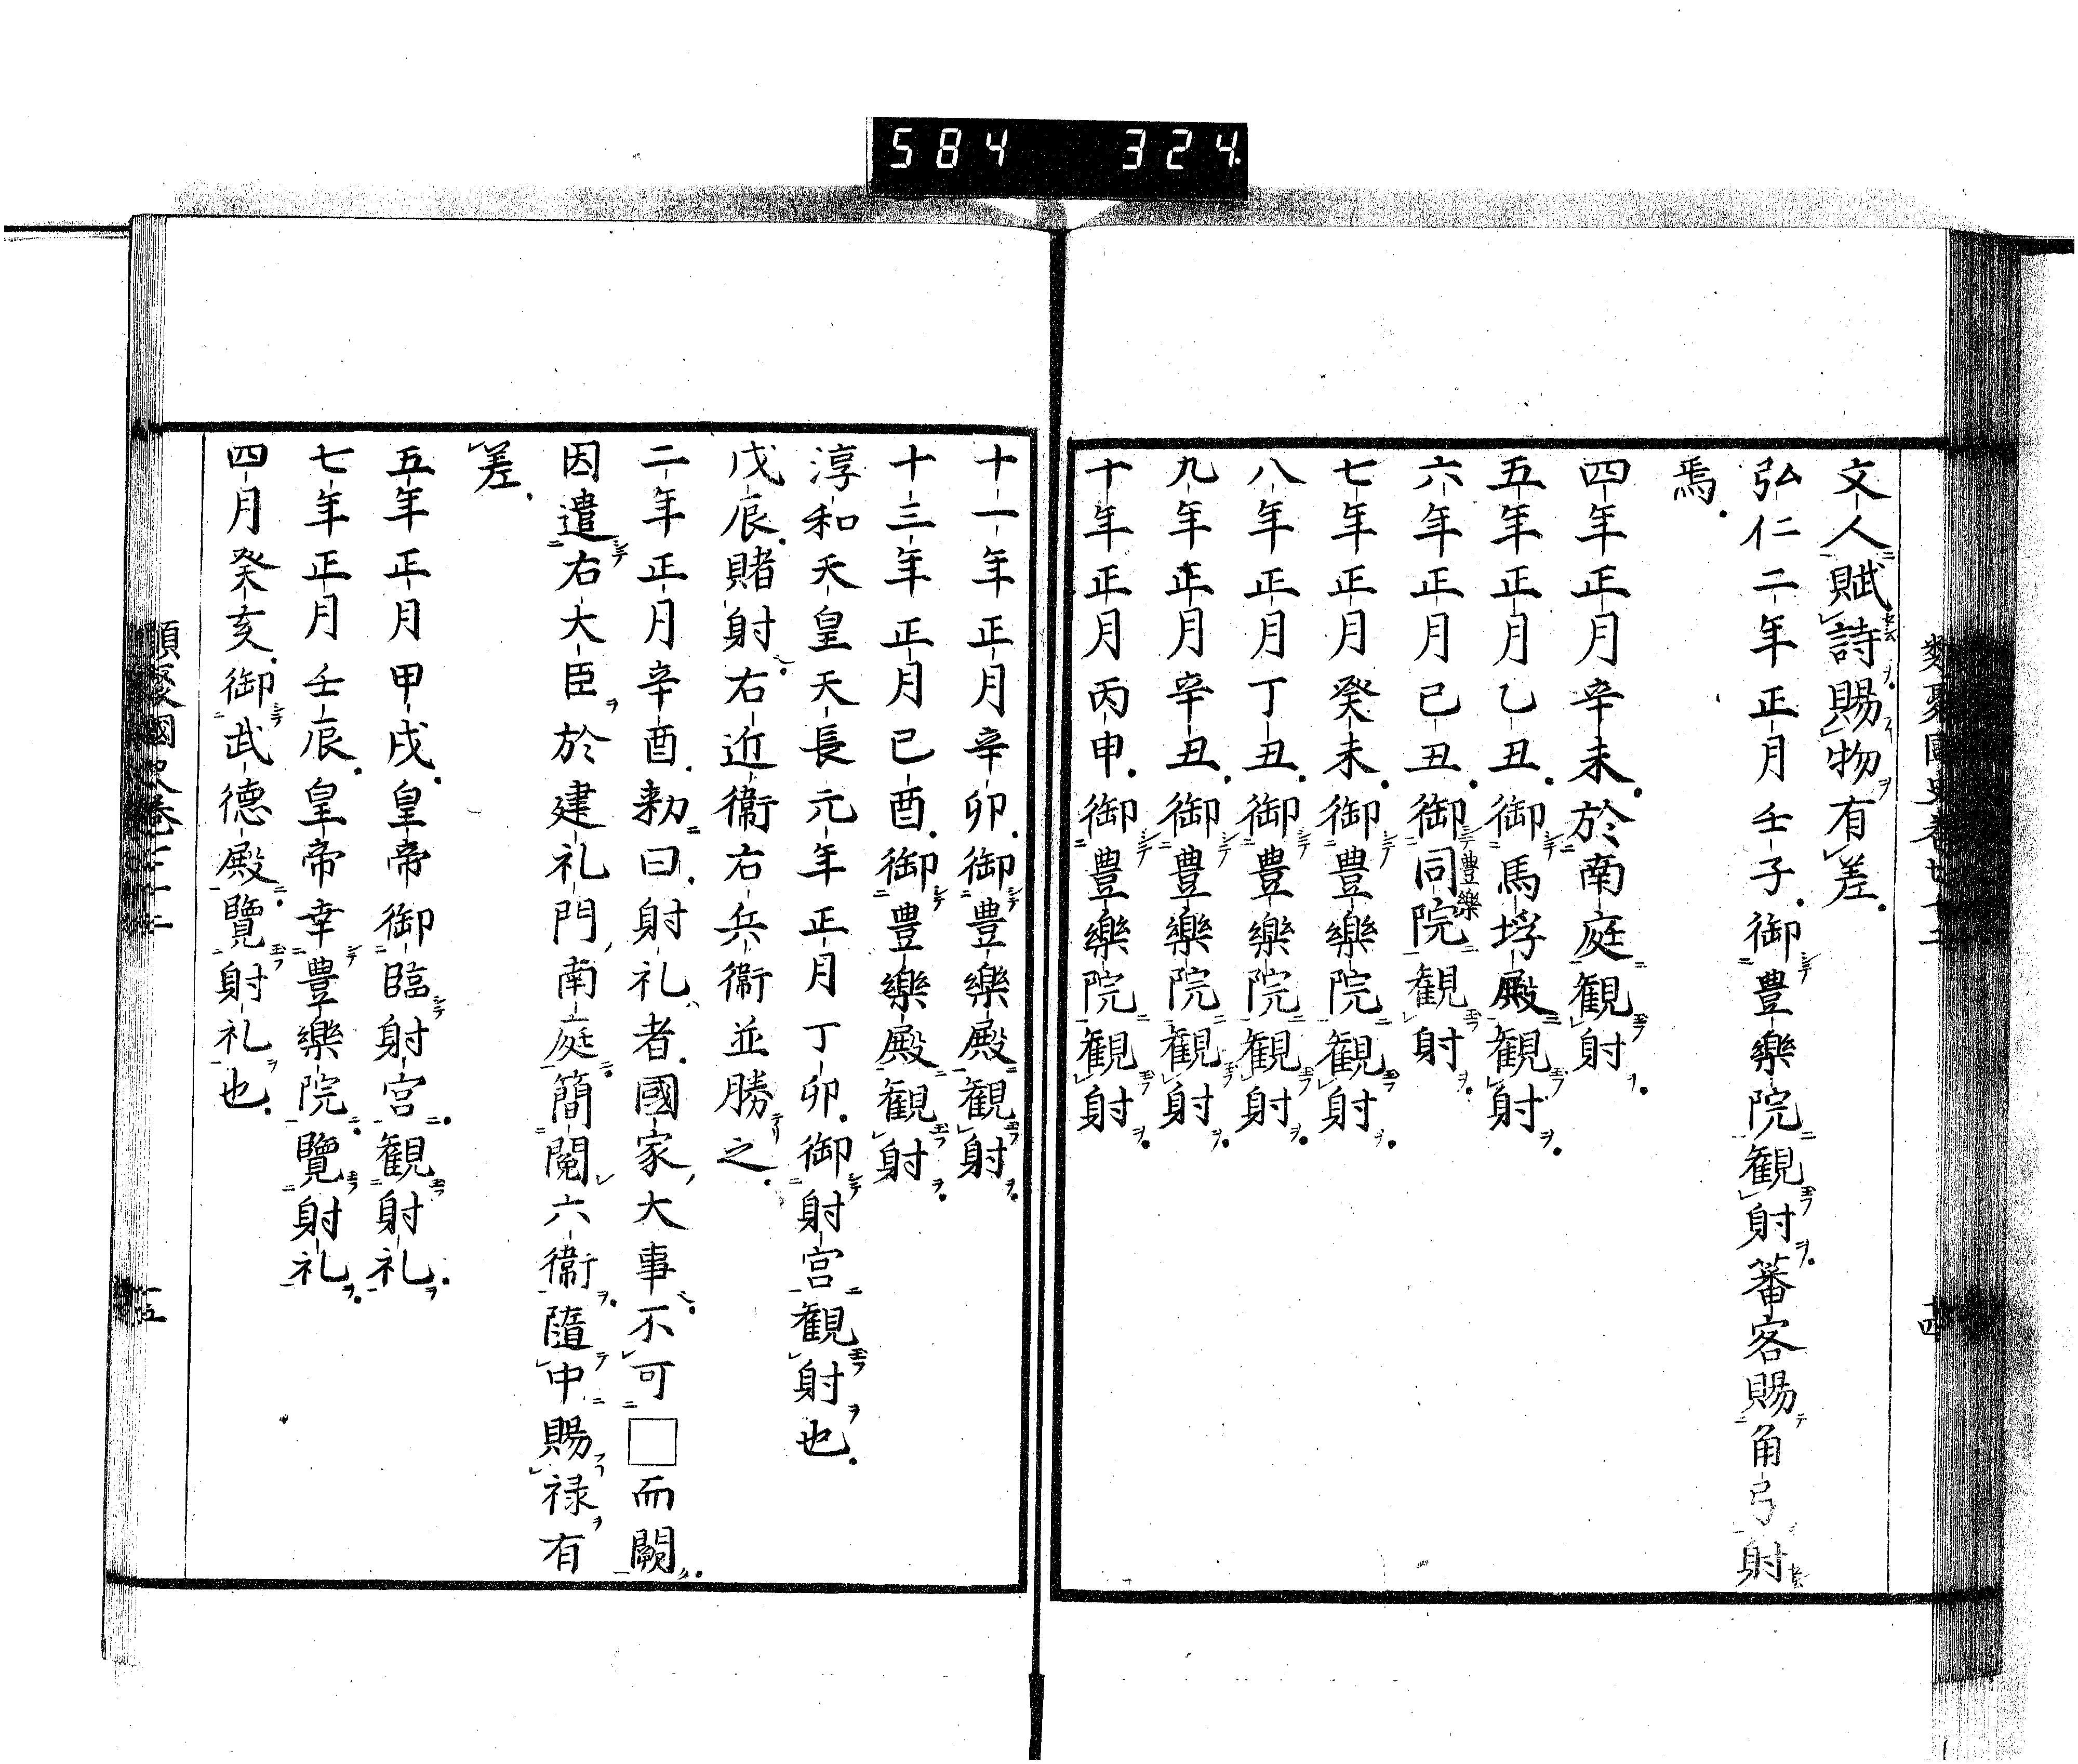 584 324
文人賦詩賜物有差
弘仁二年正月壬子御豊樂院観射蕃客賜角弓射
焉
四年正月辛未於南庭観射
五年正月乙丑御馬埒殿観射
六年正月己丑御同院豊樂観射
七年正月癸未御豊樂院観射
八年正月丁丑御豊樂院観射
九年正月辛丑御豊樂院観射
十年正月丙申御豊樂院観射
十一年正月辛卯御豊樂殿観射
十三年正月己酉御豊樂殿観射
淳和天皇天長元年正月丁卯御射宮観射也
戊辰賭射右近衞右兵衞並勝之
二年正月辛酉勅曰射礼者國家大事不可□而闕
因遣右大臣於建礼門南庭簡閲六衞隨中賜禄有
差
五年正月甲戌皇帝御臨射宮観射礼
七年正月壬辰皇帝幸豊樂院覽射礼
四月癸亥御武徳殿覽射礼也